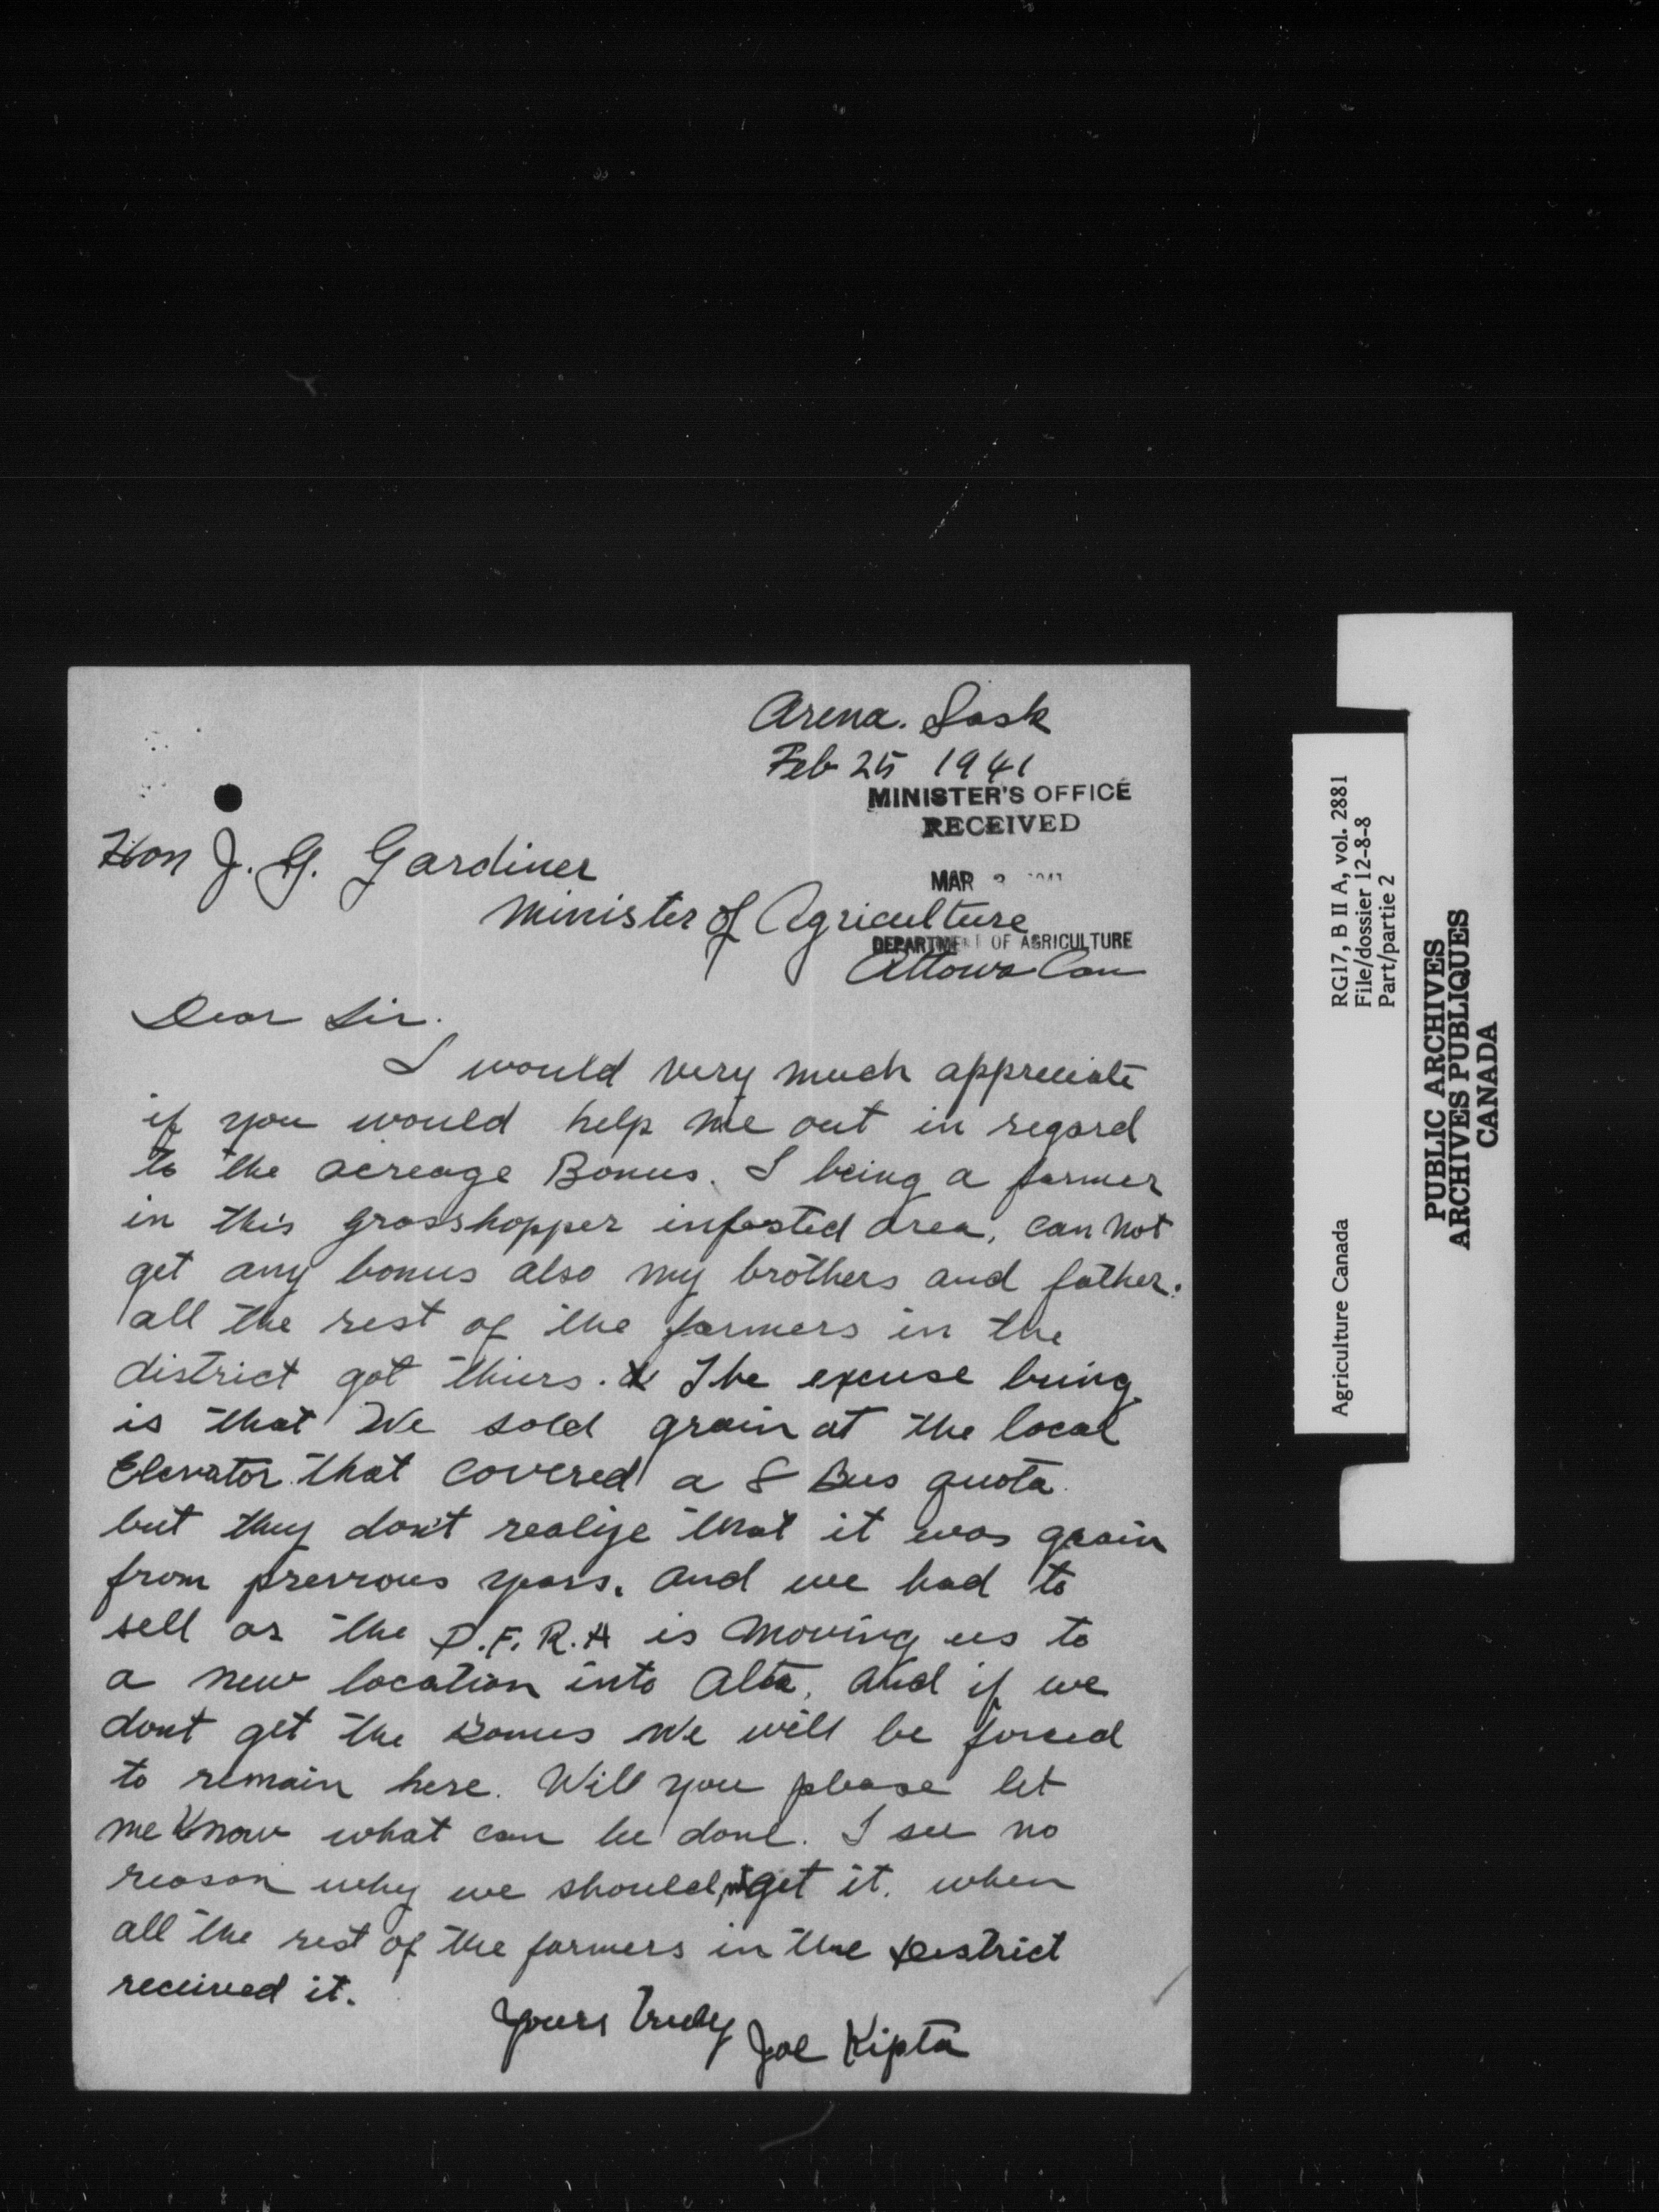 Arena. Sask
Feb 25 1941
MINISTER'S OFFICE
RECEIVED
MAR 3 1941
Hon J. G. Gardiner
Minister of Agriculture
DEPARTMENT OF AGRICULTURE
Ottowa Can
Dear Sir.
I would very much appreciate
if you would help me out in regard
to the acreage Bonus. I being a farmer
in this grasshopper infested area, can not
get any bonus also my brothers and father.
all the rest of the farmers in the
district got thiers. The excuse being
is that We sold grain at the local
Elevator that covered a 8 Bus quota.
but they don't realize that it was grain
from previous years. and we had to
sell as the P.F.R.A is moving us to
a new location into Alta, and if we
dont get the Bonus We will be forced
to remain here. Will you please let
me know what can be done. I see no
reason why we should not get it. when
all the rest of the farmers in the district
received it.
Yours Truly
Joe Kipta
Agriculture Canada
RG17, B II A, vol. 2881
File/dossier 12-8-8
Part/partie 2
PUBLIC ARCHIVES
ARCHIVES PUBLIQUES
CANADA